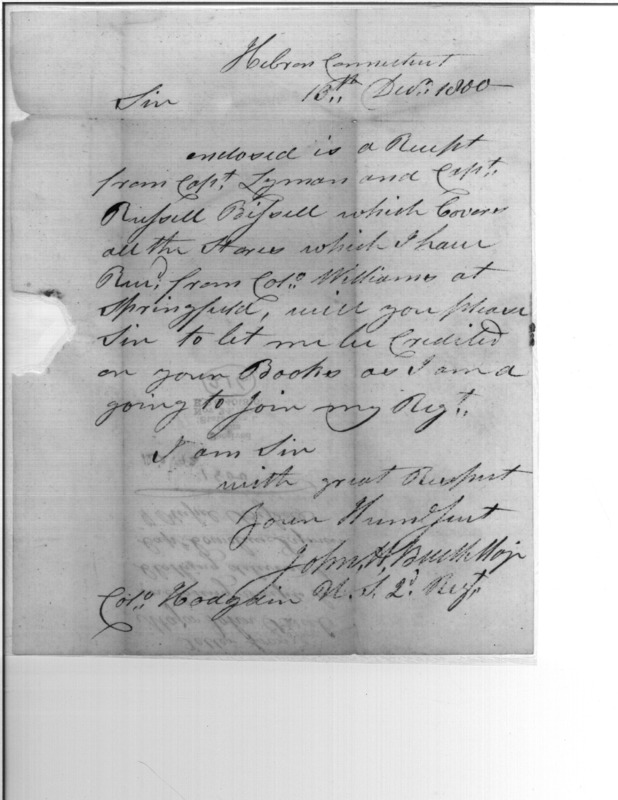 Hebron Connecticut
Sir 13th Decr. 1800
enclosed is a Recept
from Capt. Lyman and Capt.
Russell Bissell which Covers
all the Stores which I have
Recd. from Colo. Williams at
Springfield, will you please
Sir to let me be Credited
on your Books as I am a
going to Join my Regt.
I am Sir
with great Respect
Your Humb Servt
John. H. Buell Majr
Colo. Hodgkin U. S. 2d. Regt.